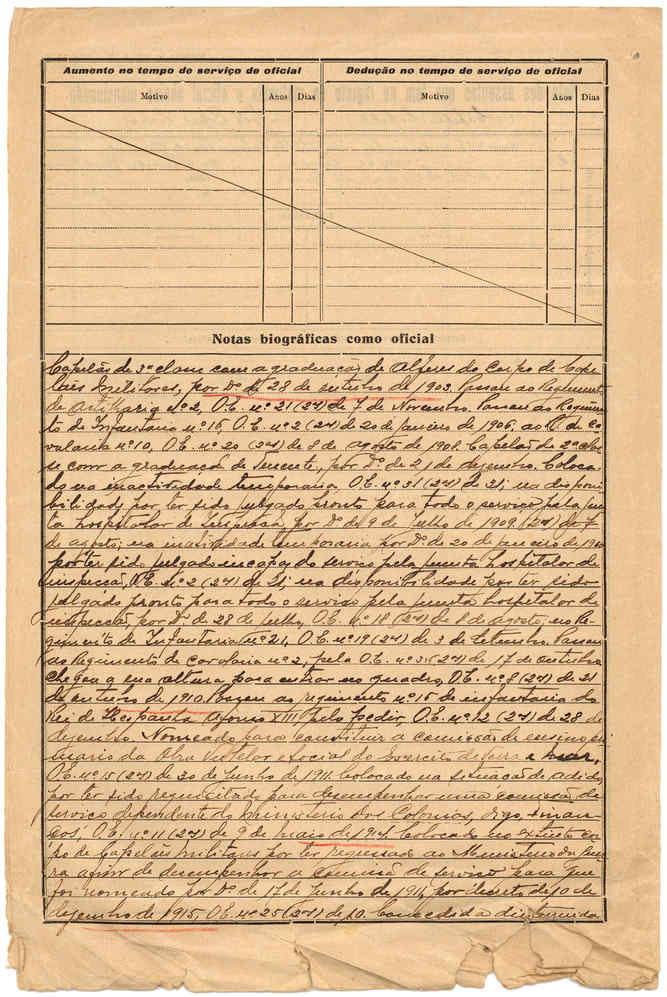 Aumento no tempo de serviço de oficial
Dedução no tempo de serviço de oficial
Motivo Anos Dias
Motivo Anos Dias
Notas biográficas como oficial
Capelão de 3ª classe com a graduação de Alferes do Corpo de Cape-
lães Militares, por Dº de 28 de outubro de 1903. Passou ao Regimento
de artilharia nº 2, O.E. nº 21 (2ª) de 7 de Novembro. Passou ao Regimen-
to de Infantaria nº 16, O.E. nº 2 (2ª) de 20 de Janeiro de 1906, ao R. de Ca-
valaria nº 10, O.E. nº 20 (2ª) de 8 de agosto de 1908. Capelão de 2ª clas-
se com a graduação de Tenente, por Dº de 21 de dezembro. Coloca-
do na inactividade temporaria, O.E. nº 31 (2ª) de 31; na disponi-
bilidade por ter sido julgado pronto para todo o serviço pela jun-
ta hospitalar de inspecção, por Dº de 9 de julho de 1909, (2ª) de 7
de agosto; na inactividade temporaria por Dº de 20 de janeiro de 1910
por ter sido julgado incapaz do serviço pela junta hospitalar de
inspecção, O.E. nº 2 (2ª) de 21; na disponibilidade por ter sido
julgado pronto para todo o serviço pela junta hospitalar de
inspecção, por Dº de 28 de julho, O.E. nº 18 (2ª) de 8 de agosto; no Re-
gimento de Infantaria nº 21, O.E. nº 19 (2ª) de 3 de Setembro. Passou
ao Regimento de cavalaria nº 2, pela O.E. (2ª) de 17 de outubro
chegou a sua altura para entrar no quadro, O.E. nº 8 (2ª) de 31
de outubro de 1910. Passou ao regimento nº 16 de infantaria do
Rei de Hespanha Afonso XIII pelo pedir, O.E. nº 12 (2ª) de 28 de
dezembro. Nomeado para constituir a comissão de ensino pri-
mario da Obra Tutelar e Social do Exercito de terra e mar,
O.E. nº 15 (2ª) de 30 de Junho de 1911. Colocado na situação de adido
por ter sido requisitado para desempenhar uma comissão de
serviço dependente do Ministerio das Colonias,
O.E. nº 11 (2ª) de 9 de maio de 1914. Colocado no extinto cor-
po de Capelães militares por ter regressado ao Ministerio da Guer-
ra afim de desempenhar a comissão de serviço para que
foi nomeado por Dº de 17 de Junho de 1911, por decreto de 10 de
dezembro de 1915, O.E. nº 25 (2ª) de 10. Concedida